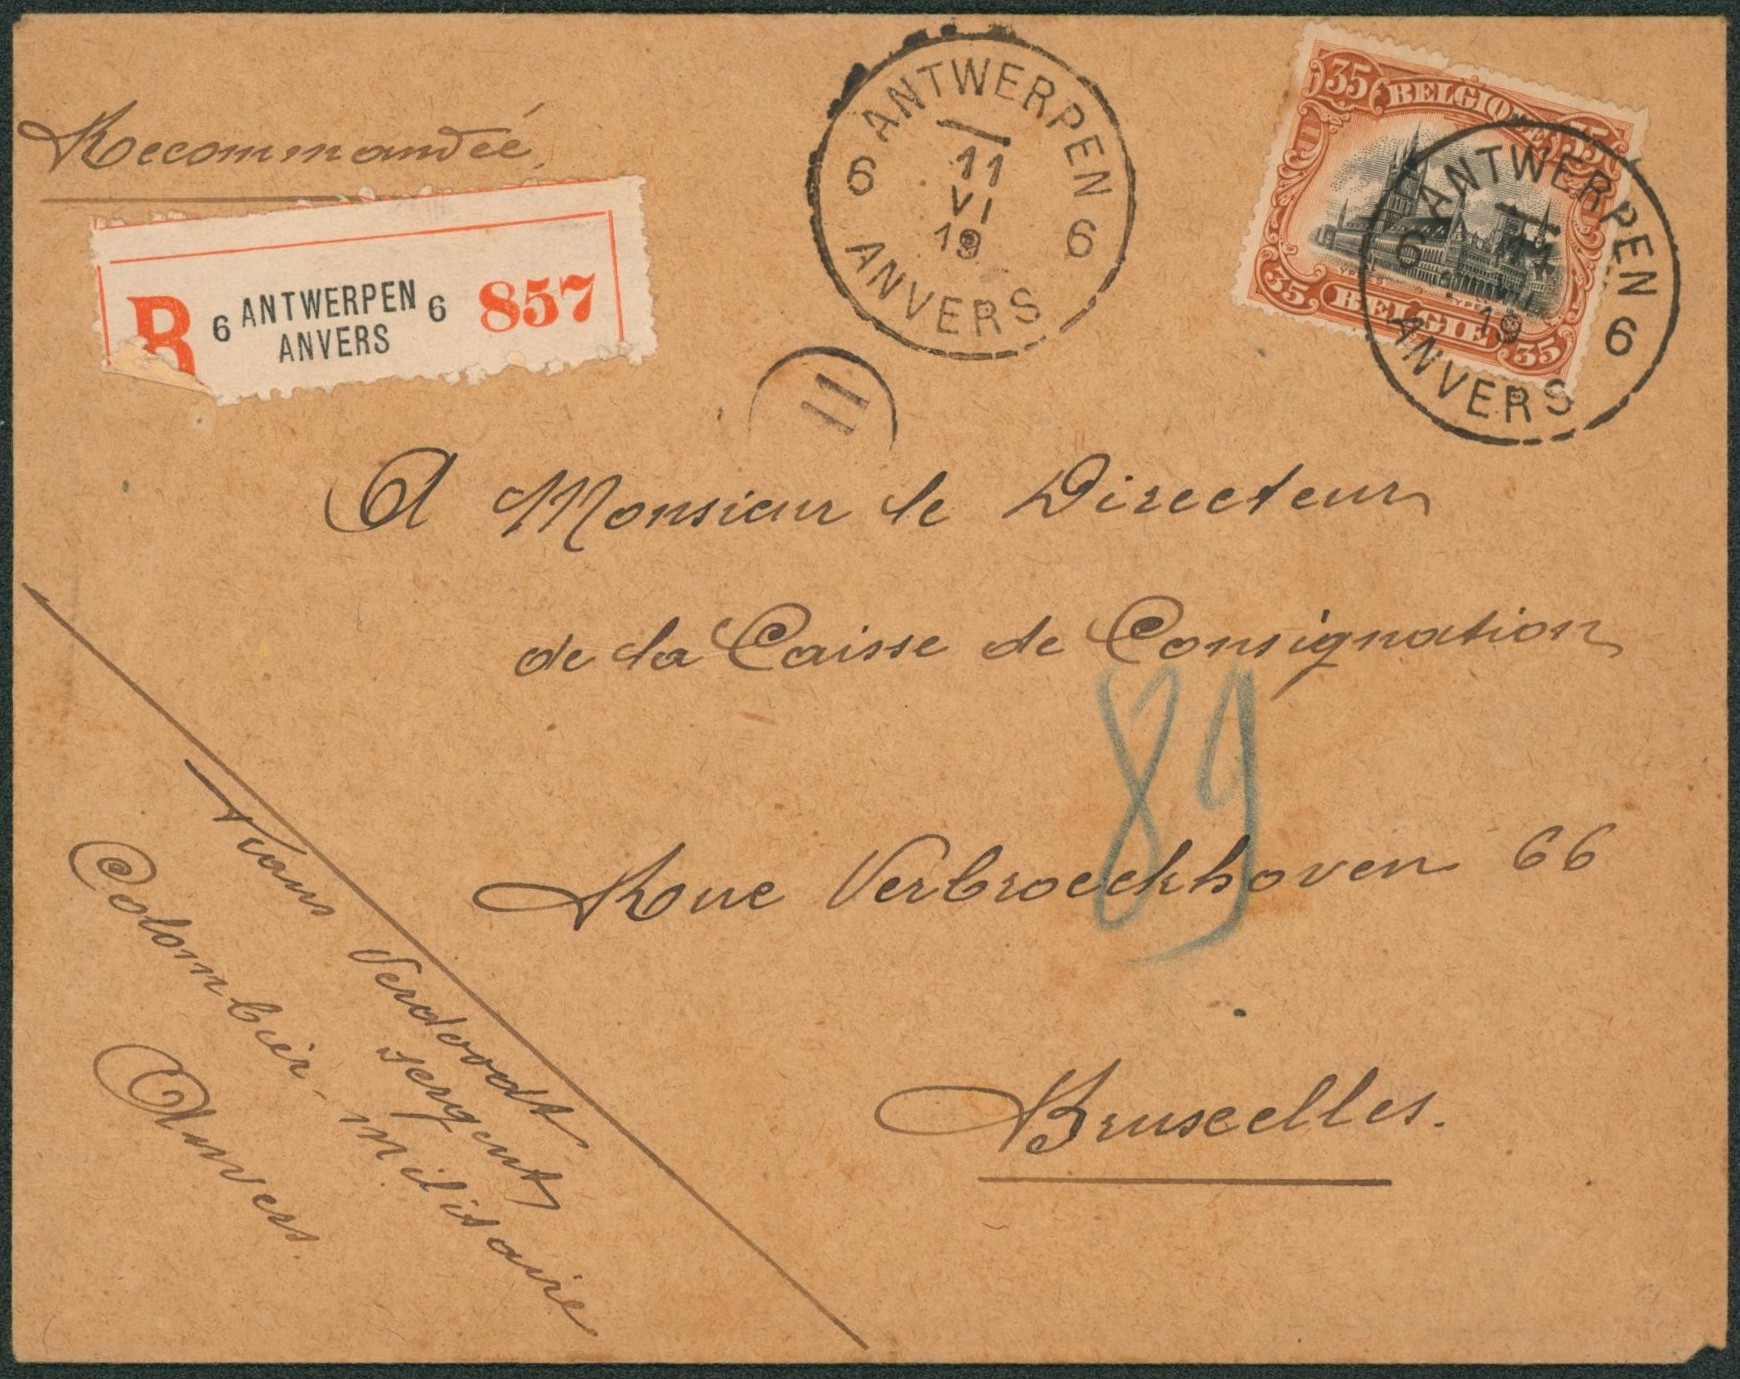 Recommandée.
R 6 ANTWERPEN 6 857
ANVERS
6 ANTWERPEN 6
11
VI
19
ANVERS
35 BELGIQUE 35
YPRES YPER
35 BELGIE 35
6 ANTWERPEN 6
11
19
ANVERS
11
A Monsieur le Directeur
de la Caisse de Consignation
89
Rue Verbroeckhoven 66
Bruxelles.
Verdoodt
sergent
Colombier-militaire
Anvers.